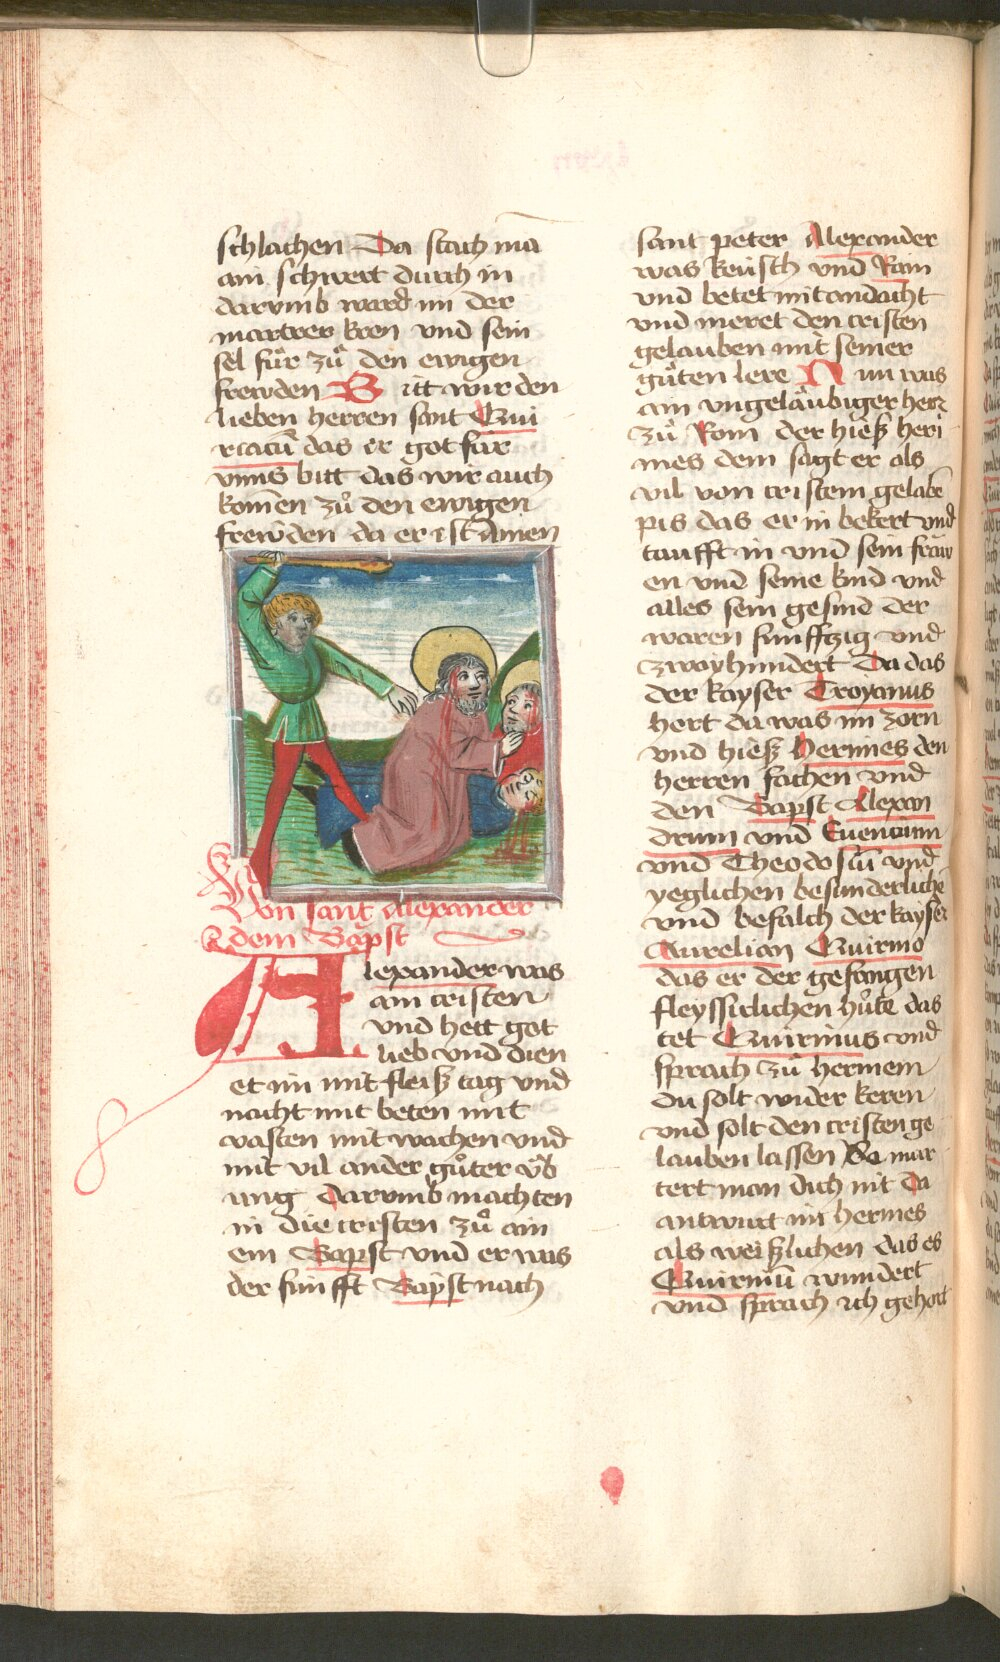 schlachen Da stach ma
ain schwert durch in
darvmb ward im der
martrer kron vnd sein
sel fůr zů den ewigen
frewden Bitt wir den
lieben herren sant Qui
riacū das er got für
vnns bitt das wir auch
komen zů den ewigen
frewden da er ist Amen
Von sant Alexander
dem Bapst
Alexander was
ain cristen
vnd hett got
lieb vnd dien
et im mit fleiß tag vnd
nacht mit beten mit
vasten mit wachen vnd
mit vil ander gůter vͤb
ung Darvmb machten
in die cristen zů ain
em Bapst vnd er was
der fünfft Bapst nach
sant peter Alexander
was keüsch vnd Rain
vnd betet mit andacht
vnd meret den cristen
gelauben mit seiner
gůten lere Nun was
ain vngeläubiger herr
zů Rom der hieß heri
mes dem sagt er als
vil von cristem gelabē
pis das er in bekert vnd
taufft in vnd sein fraw
en vnd seine kind vnd
alles sein gesind der
waren fünffzig vnd
zwayhundert Da das
der kayser Troyanus
hort da was im zorn
vnd hieß hermes den
herren fachen vnd
den Bapst Alexan
drum vnd Euentium
vnd Theodolū vnd
yeglichen besunderlichē
vnd befalch der kayser
Aurelian Quirino
das er der gefangen
fleyssiclichen hůte das
tet Quirinus vnd
sprach zů hermem
du solt wider keren
vnd solt den cristen ge
lauben lassen So mar
tert man dich nit Da
antwurt im hermes
als weißlichen das es
Quirinū wundert
vnd sprach ich gehort